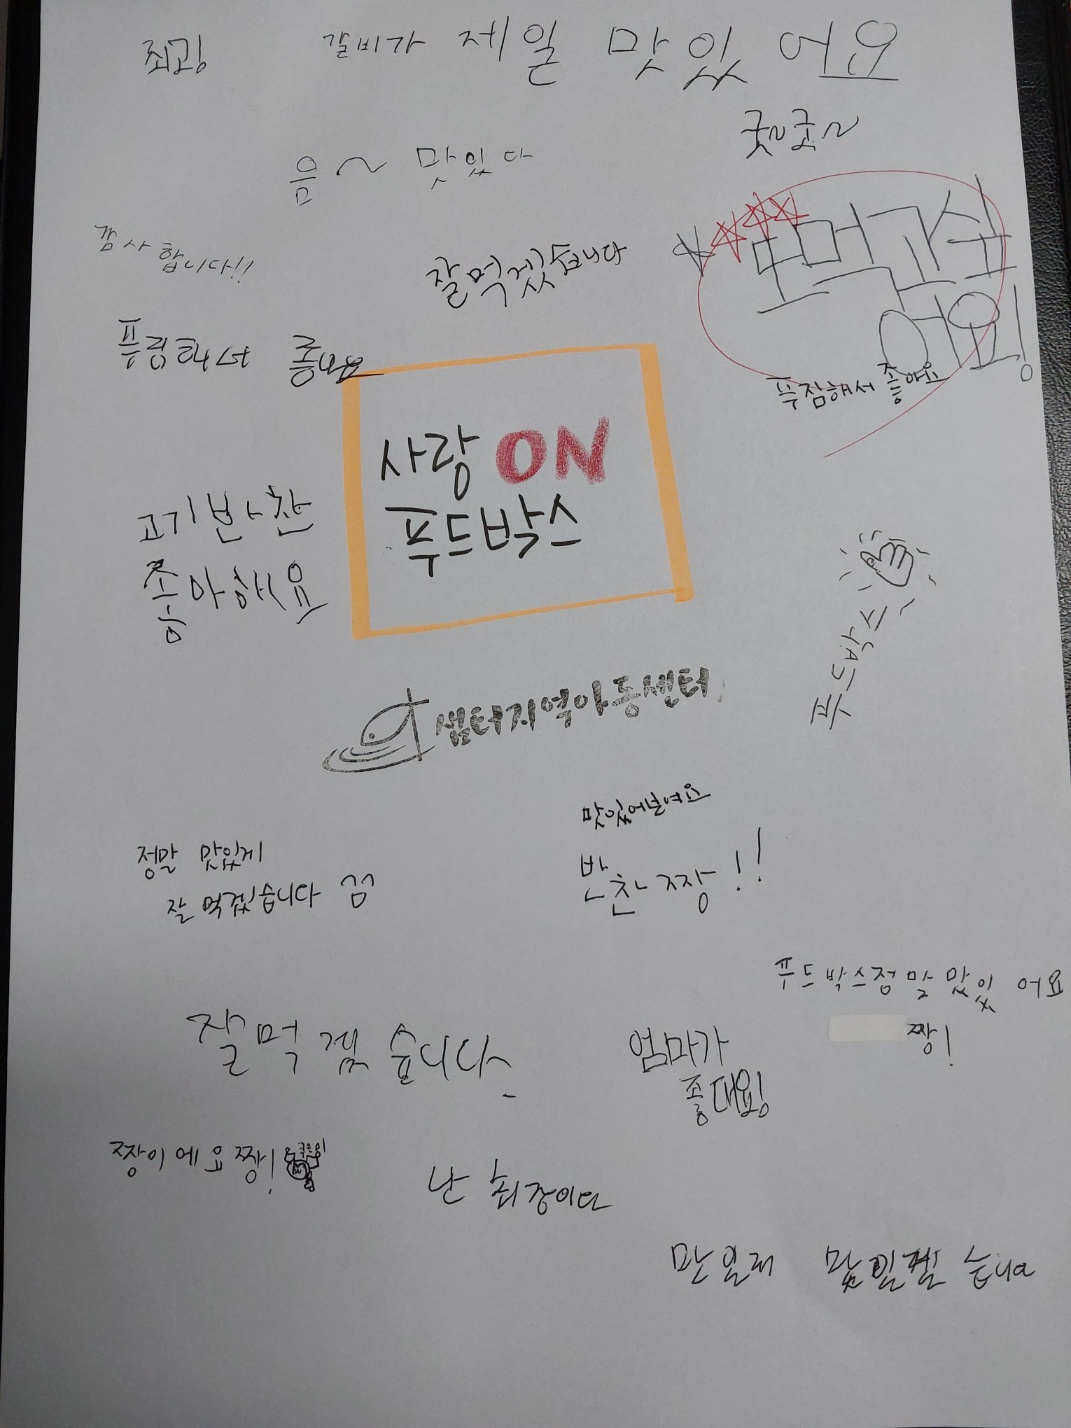 최고!
갈비가 제일 맛있어요
굿~굿~
음~ 맛있다
감사합니다!!
잘먹겠습니다
또먹고싶
어요!
푸짐해서 좋아요
푸짐해서 좋아요
사랑 ON
푸드박스
고기반찬
좋아해요
푸드박스
샘터지역아동센터
맛있어보여요
정말 맛있게
잘 먹겠습니다
반찬짱!!
푸드박스정말 맛있어요
짱!
잘먹겠습니다
엄마가
좋대요!
짱이에요짱!
난 최강이다